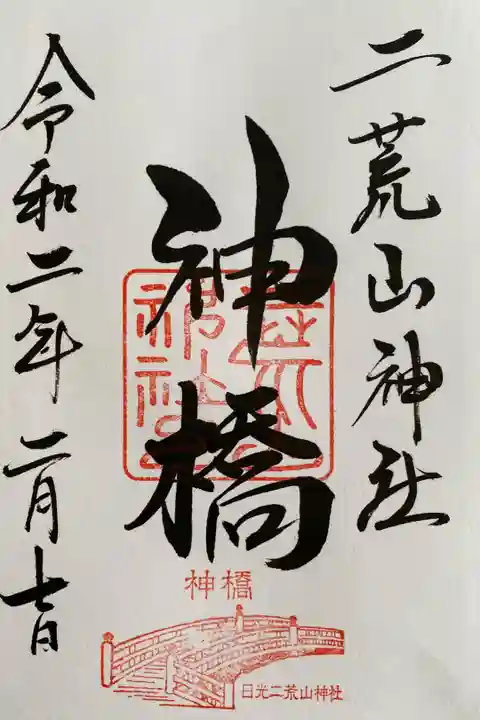 二荒山神社
神橋
令和二年二月七日
神橋
日光二荒山神社